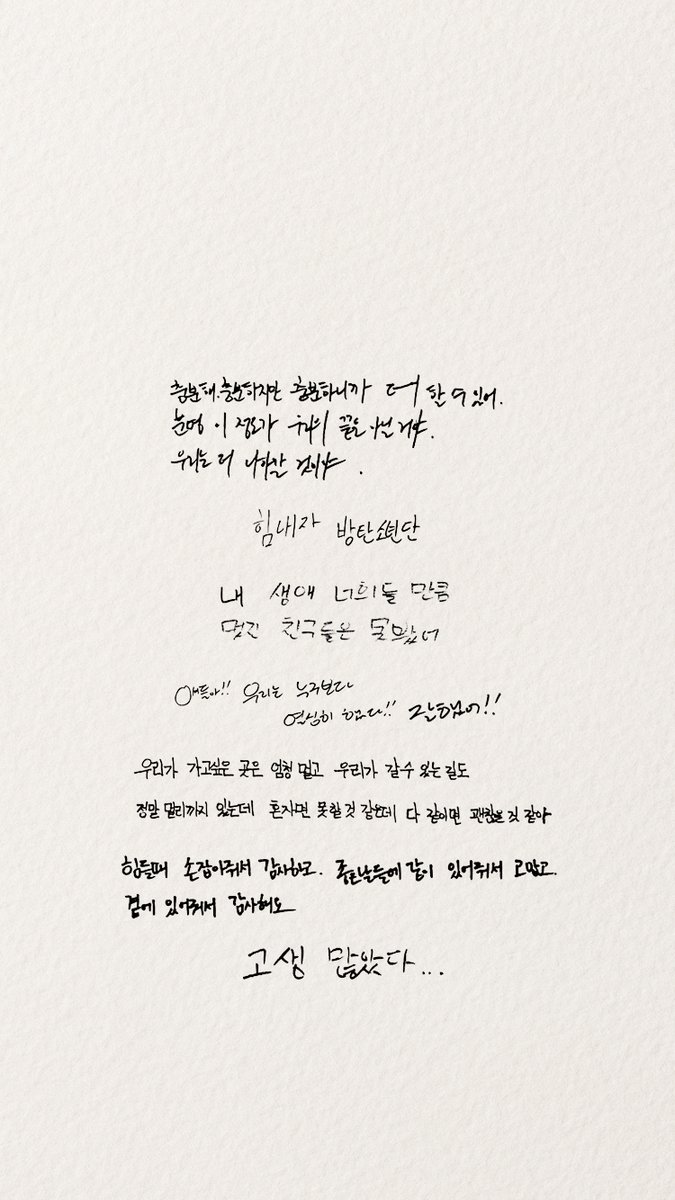 충분해. 충분하지만 충분하니까 더 할 수 있어.
분명 이 정도가 우리의 끝은 아닌 거야.
우리는 더 나아갈 것이야.
힘내자 방탄소년단
내 생애 너희들 만큼
멋진 친구들은 못봤어
얘들아!! 우리는 누구보다
열심히 했다!! 잘했어!!
우리가 가고싶은 곳은 엄청 멀고 우리가 갈수 있는 길도
정말 멀리까지 있는데 혼자면 못할 것 같은데 다 같이면 괜찮을 것 같아
힘들때 손잡아줘서 감사하고. 좋은날들에 같이 있어줘서 고맙고.
곁에 있어줘서 감사해요
고생 많았다...